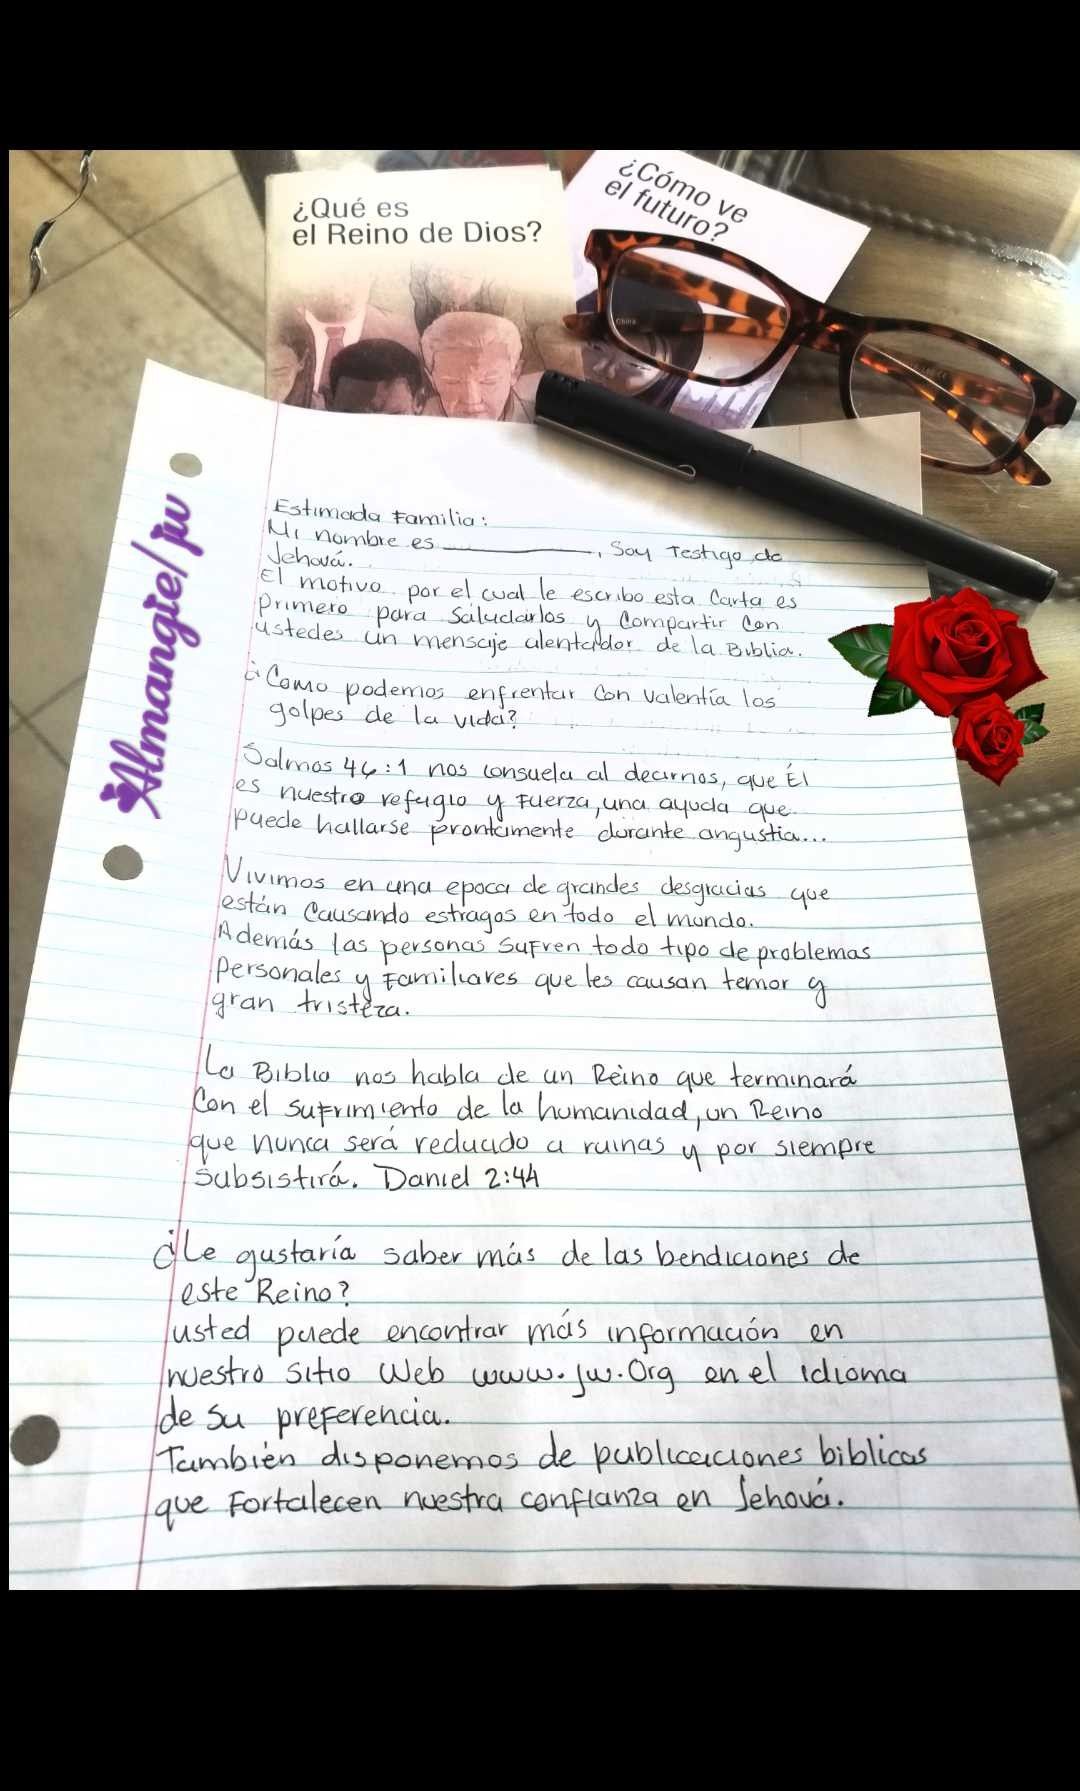 ¿Qué es
el Reino de Dios?
¿Cómo ve
el futuro?
China
Almangie/jw
Estimada Familia:
Mi nombre es ____________, Soy Testigo de
Jehová.
El motivo por el cual le escribo esta Carta es
primero para Saludarlos y Compartir Con
ustedes un mensaje alentador de la Biblia.
¿Como podemos enfrentar Con valentía los
golpes de la vida?
Salmos 46:1 nos consuela al decirnos, que Él
es nuestro refugio y Fuerza, una ayuda que
puede hallarse prontamente durante angustia...
Vivimos en una epoca de grandes desgracias que
están Causando estragos en todo el mundo.
Además las personas sufren todo tipo de problemas
Personales y Familiares que les causan temor y
gran tristeza.
La Biblia nos habla de un Reino que terminará
Con el sufrimiento de la humanidad, un Reino
que nunca será reducido a ruinas y por siempre
Subsistirá. Daniel 2:44
¿Le gustaría saber más de las bendiciones de
este Reino?
usted puede encontrar más información en
nuestro Sitio Web www.jw.Org en el idioma
de su preferencia.
También disponemos de publicaciones biblicas
que Fortalecen nuestra confianza en Jehová.